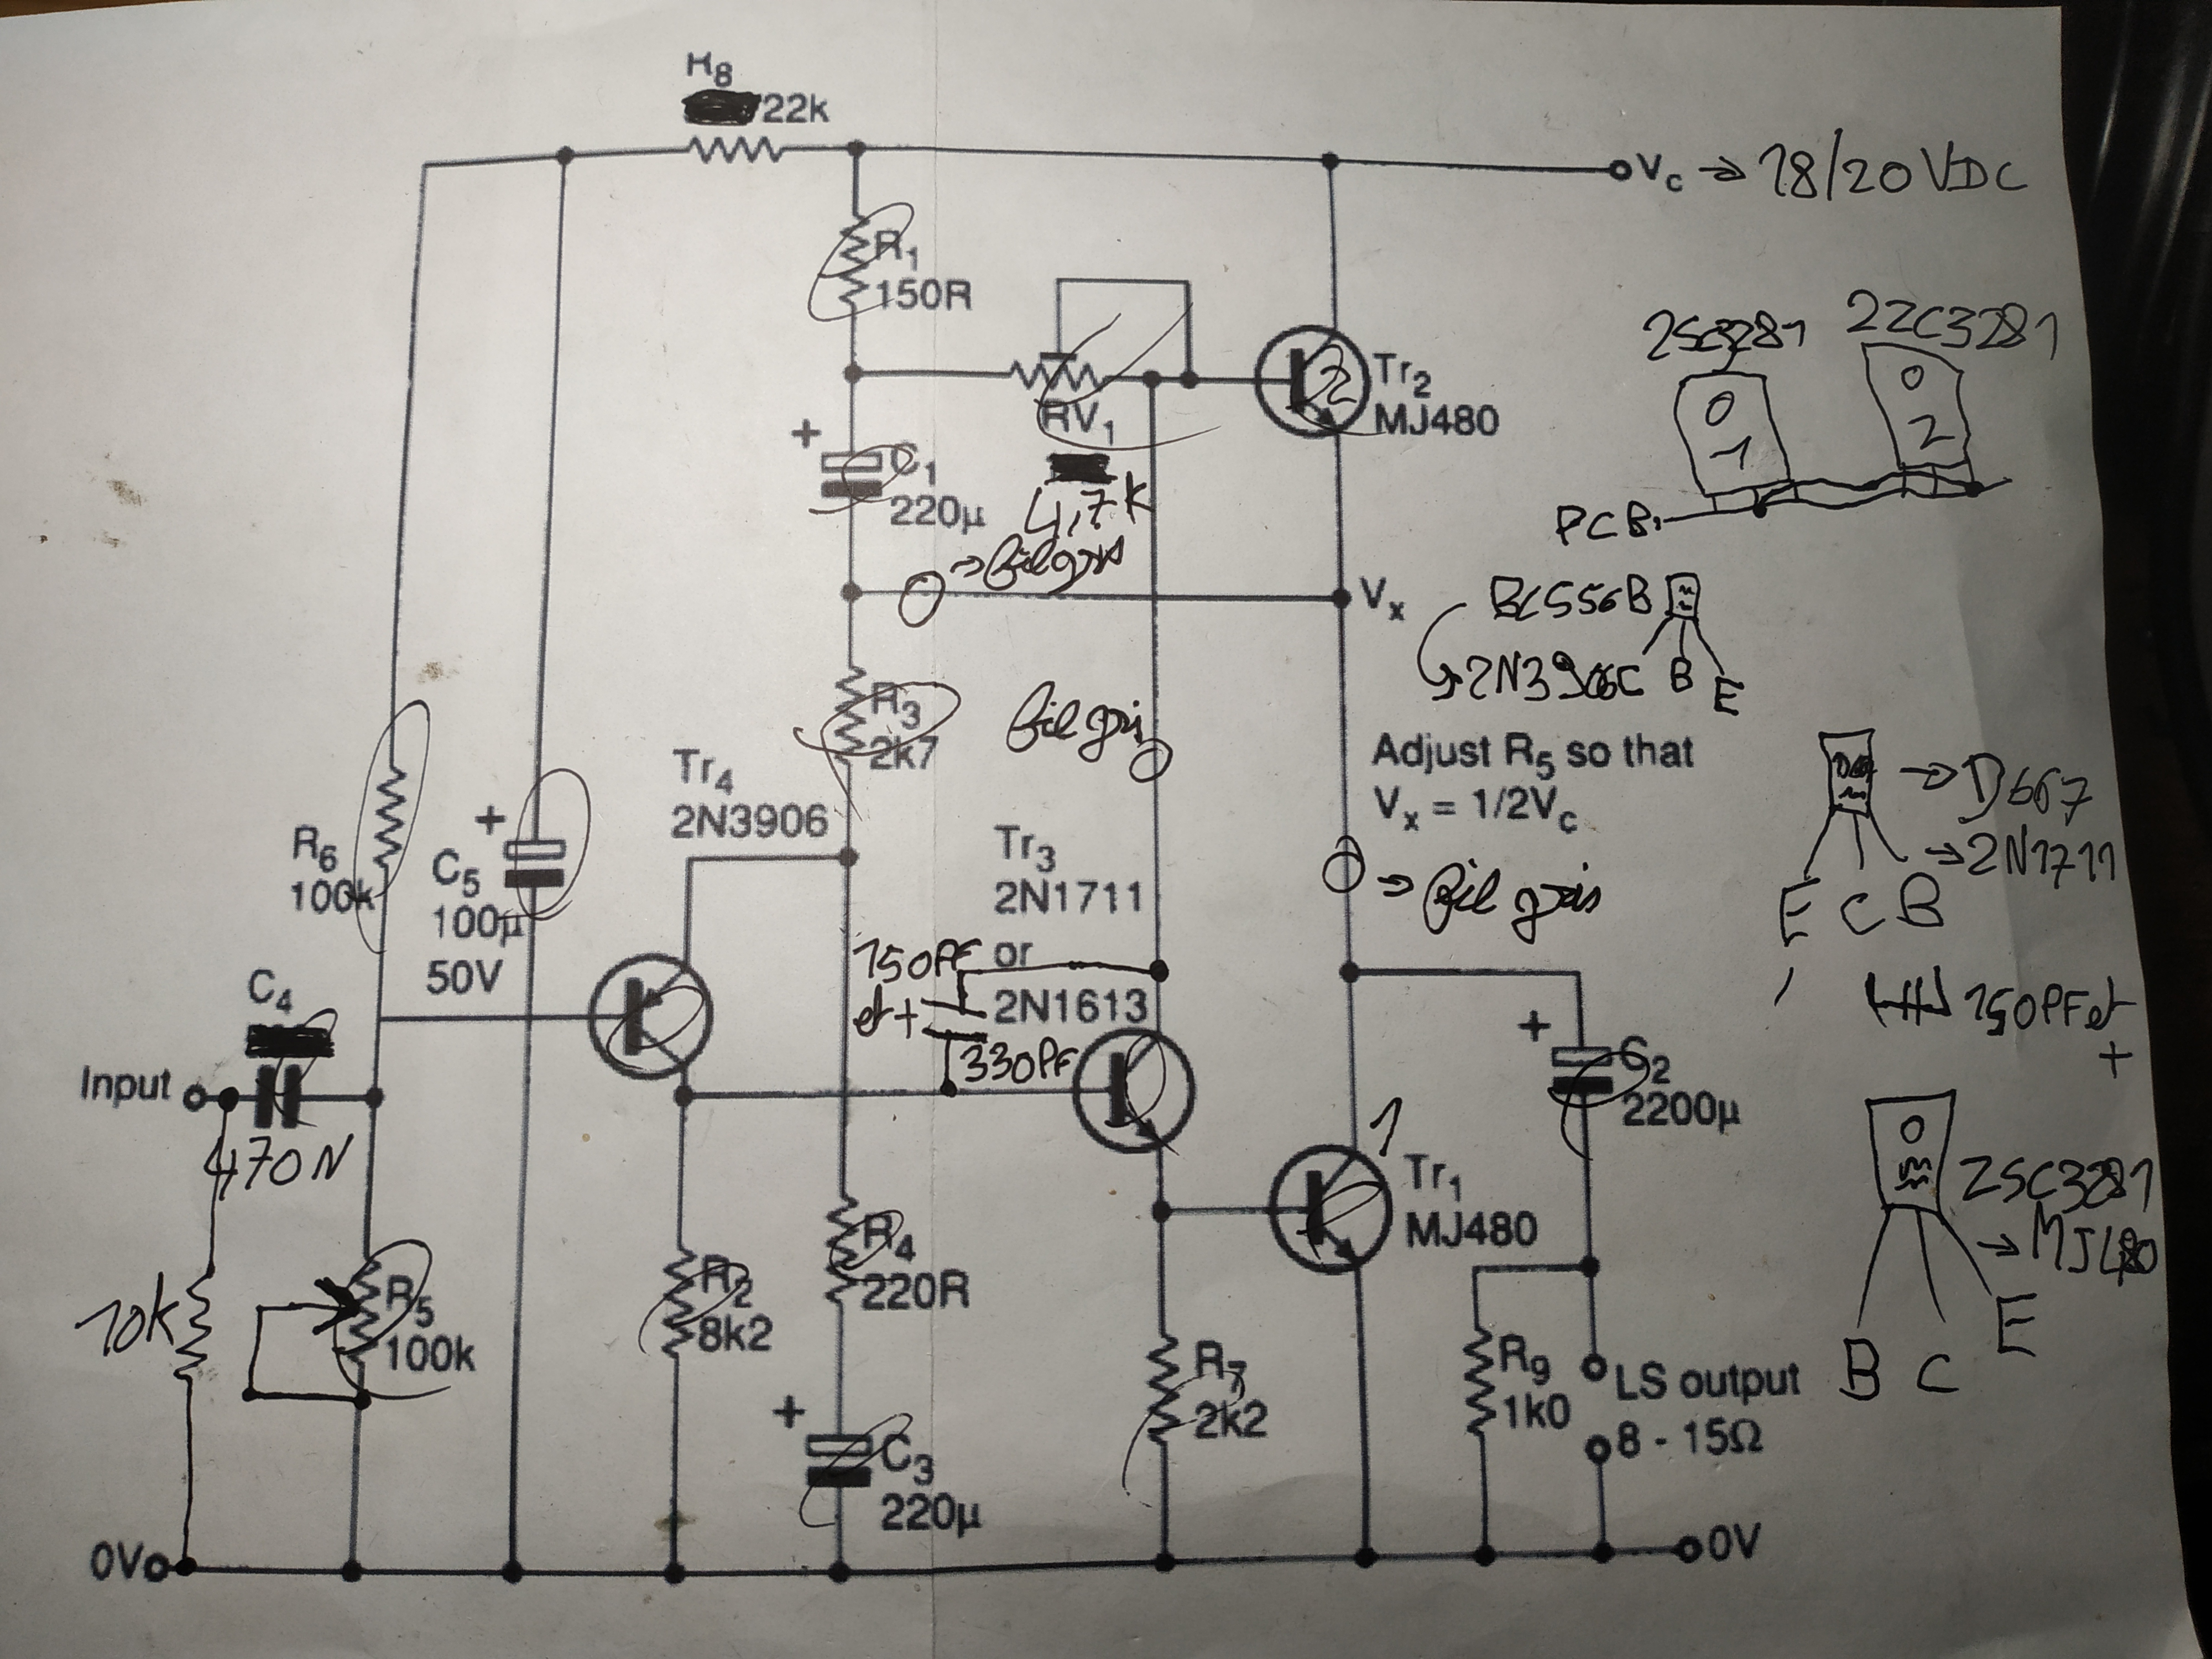 R8
22k
Vc → 18/20 VDC
R1
150R
2SC3281
2ZC3281
Tr2
MJ480
2
RV1
4,7K
1
2
+
C1
220μ
PCB
→ fil gris
Vx
BC556B
2N3906
C B E
R3
2k7
fil gris
Tr4
2N3906
Adjust R5 so that
Vx = 1/2Vc
→ D667
→ 2N1711
E C B
R6
100k
+
C5
100μ
50V
Tr3
2N1711
or
2N1613
→ fil gris
150PF
et +
330PF
150PF et
+
C4
470N
Input
+
C2
2200μ
1
Tr1
MJ480
2SC3281
→ MJ480
B C E
10k
R5
100k
R2
8k2
R4
220R
R7
2k2
R9
1k0
LS output
8 - 15Ω
+
C3
220μ
0V
0V